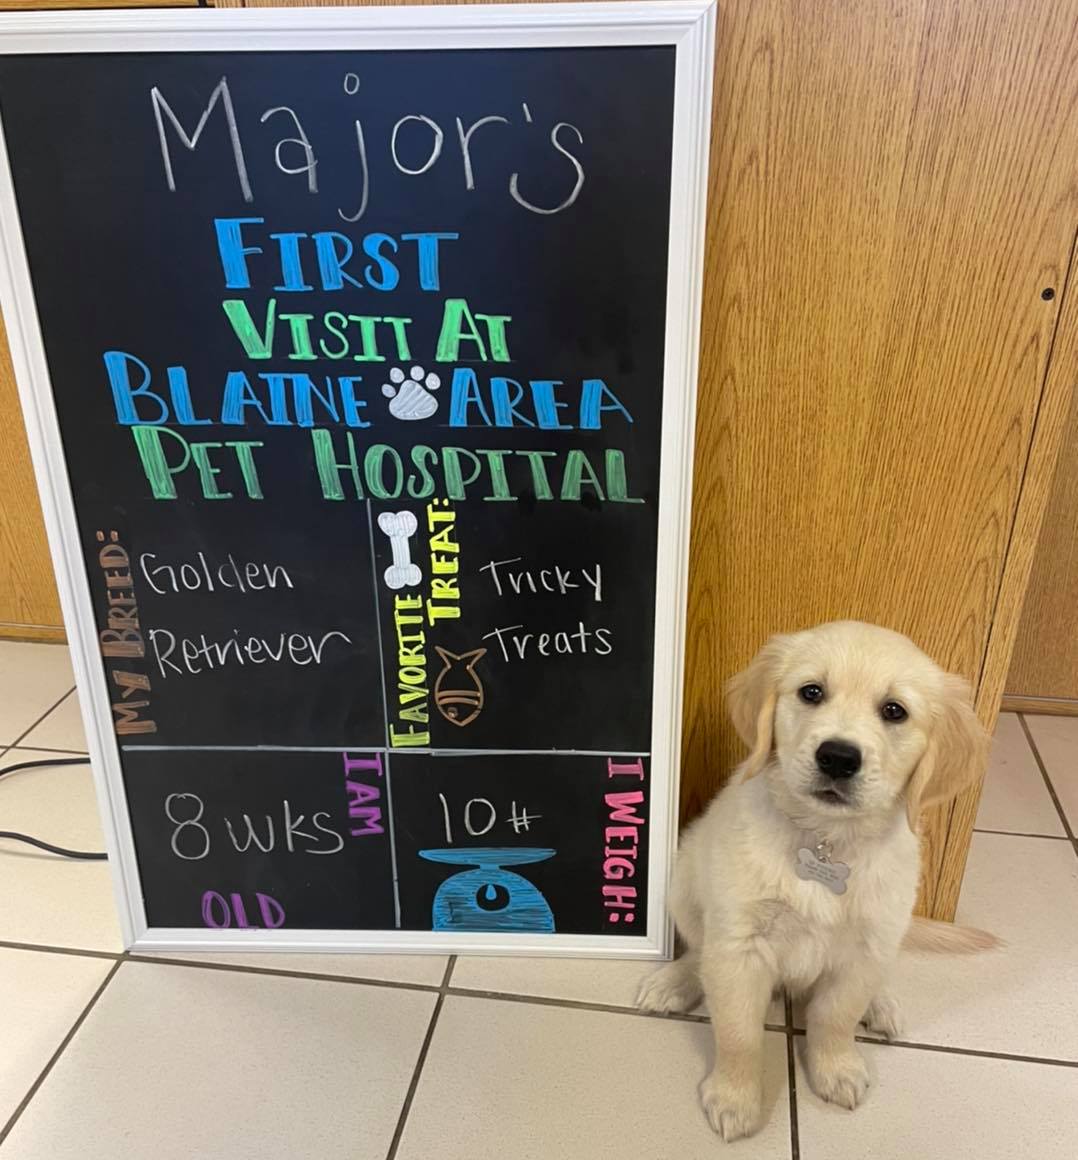 Major's
FIRST
VISIT AT
BLAINE AREA
PET HOSPITAL
MY BREED:
Golden
Retriever
FAVORITE
TREAT:
Tricky
Treats
I AM
8 wks
OLD
I WEIGH:
10#